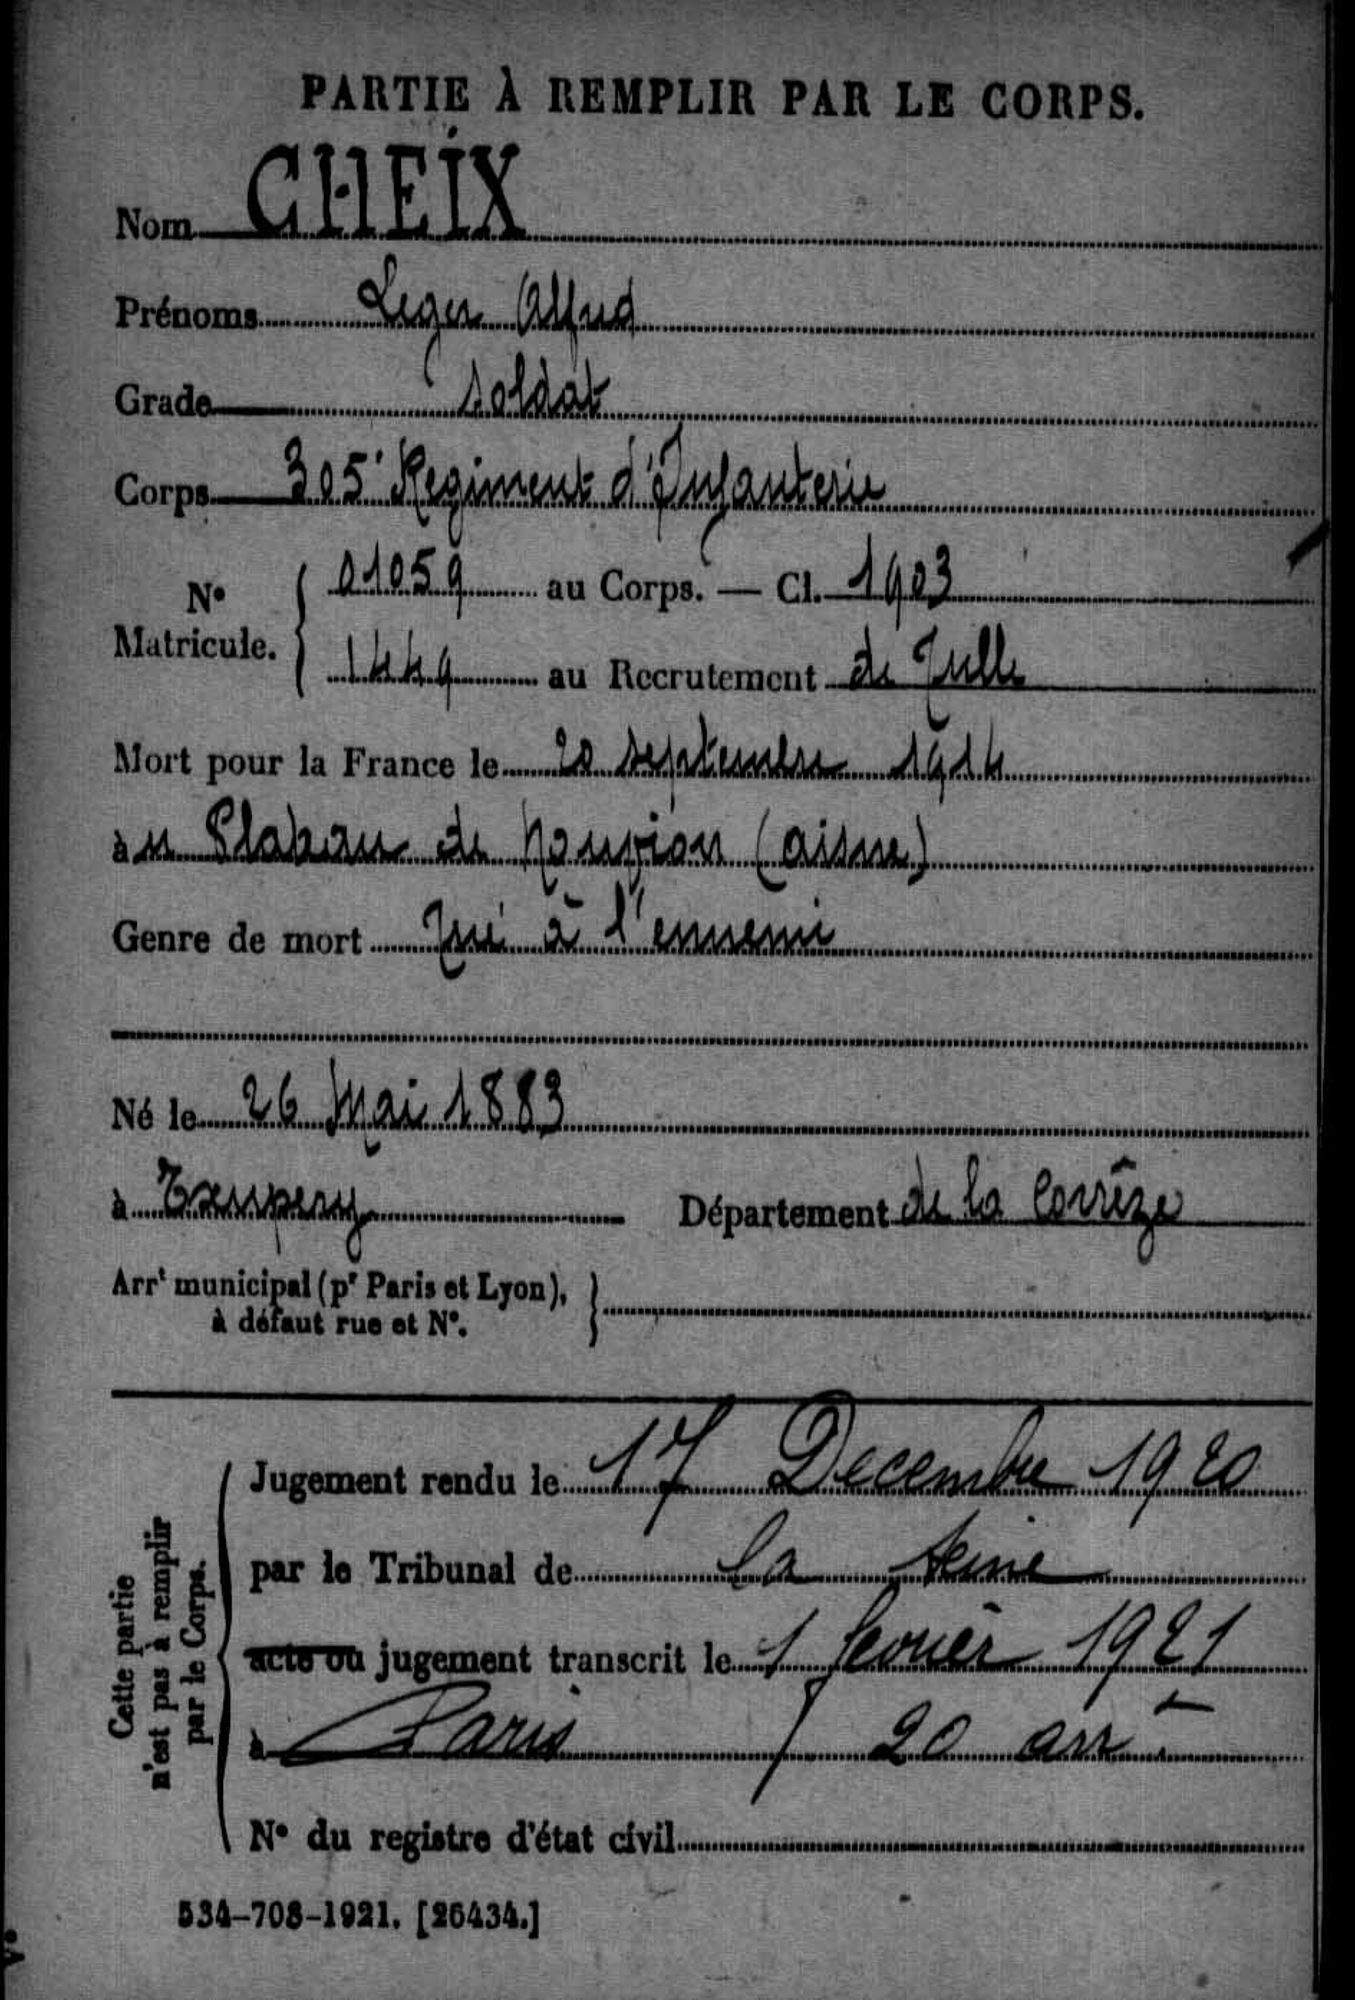 PARTIE À REMPLIR PAR LE CORPS.
Nom CHEIX
Prénoms Leger Alfred
Grade soldat
Corps 305e Regiment d'Infanterie
N° Matricule. { 01059 au Corps. — Cl. 1903
1449 au Recrutement de Tulle
Mort pour la France le 20 septembre 1914
à u Plateau de Nouvion (aisne)
Genre de mort Tué à l'ennemi
Né le 26 Mai 1883
à Exupery Département de la Corrèze
Arrt municipal (pr Paris et Lyon), à défaut rue et N°. }
Cette partie n'est pas à remplir par le Corps.
Jugement rendu le 17 Decembre 1920
par le Tribunal de la Seine
acte ou jugement transcrit le 1 fevrier 1921
à Paris / 20 arrt
N° du registre d'état civil
534-708-1921. [26434.]